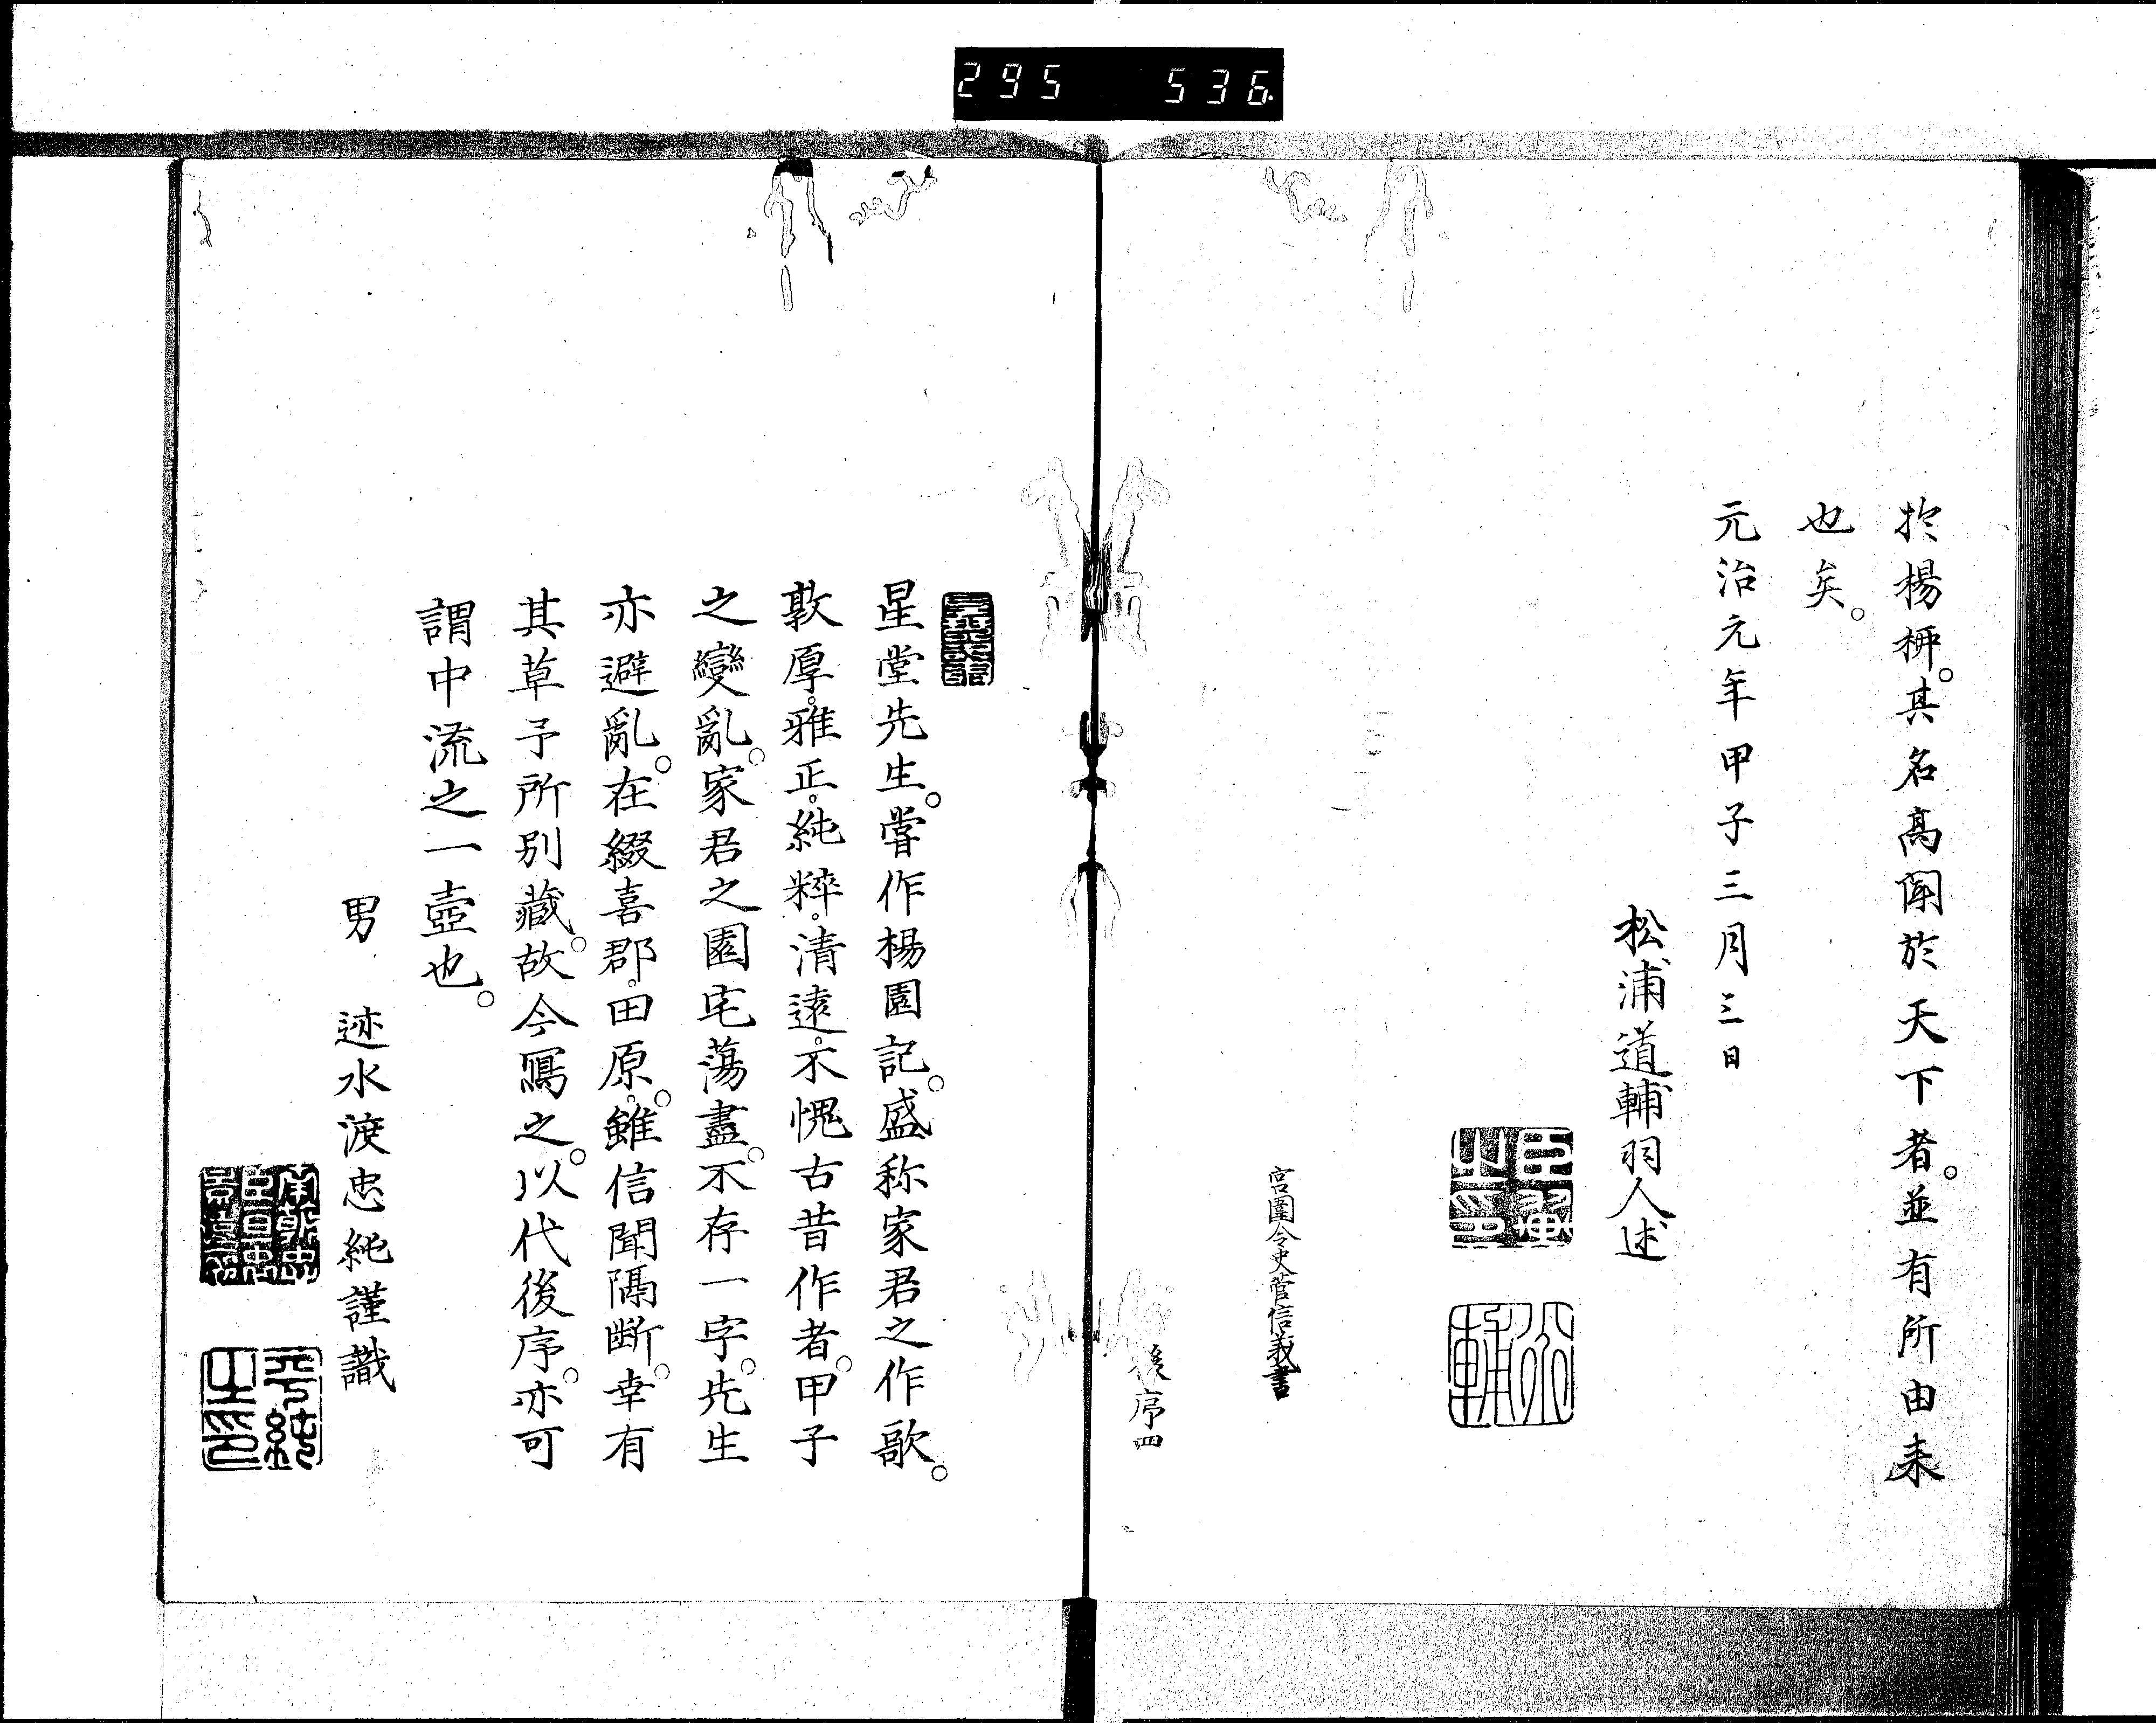 295 536
於楊柳。其名高聞於天下者。並有所由来
也矣。
元治元年甲子三月三日
松浦道輔羽人述
道輔
宮圍令史菅信義書
後序四
星堂先生。嘗作楊園記。盛称家君之作歌。
敦厚。雅正。純粹。清遠。不愧古昔作者。甲子
之變亂。家君之園宅蕩盡。不存一字。先生
亦避亂。在綴喜郡。田原。雖信聞隔断。幸有
其草予所別藏。故今寫之。以代後序。亦可
謂中流之一壺也。
男 迹水渡忠純謹識
平純之印